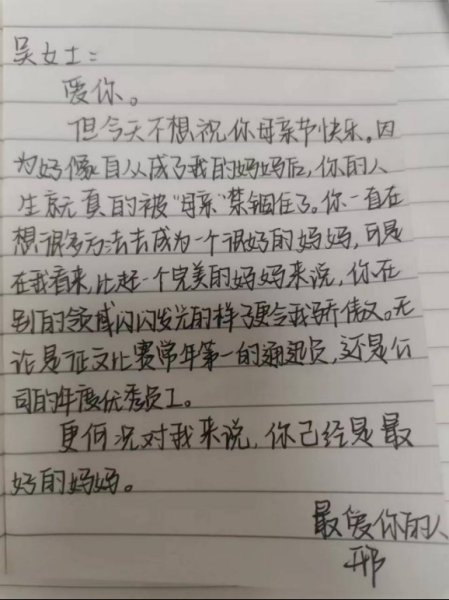 吴女士：
爱你。
但今天不想祝你母亲节快乐。因
为好像自从成了我的妈妈后，你的人
生就真的被“母亲”禁锢住了。你一直在
想很多方法去成为一个很好的妈妈，可是
在我看来，比起一个完美的妈妈来说，你在
别的领域闪闪发光的样子更令我骄傲。无
论是征文比赛常年第一的通讯员，还是公
司的年度优秀员工。
更何况对我来说，你已经是最
好的妈妈。
最爱你的人
邢